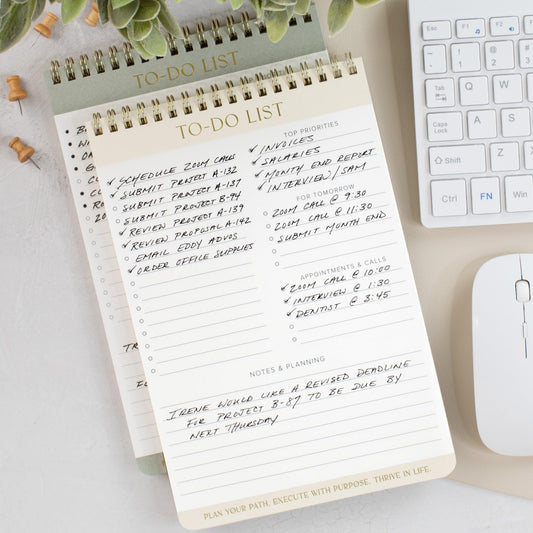 TO-DO LIST
TO-DO LIST
TOP PRIORITIES
✓ INVOICES
✓ SALARIES
✓ MONTH END REPORT
✓ INTERVIEW/SAM
✓ SCHEDULE ZOOM CALLS
✓ SUBMIT PROJECT A-132
✓ SUBMIT PROJECT A-137
SUBMIT PROJECT B-94
✓ REVIEW PROJECT A-139
✓ REVIEW PROPOSAL A-142
EMAIL EDDY ADVOS
✓ ORDER OFFICE SUPPLIES
FOR TOMORROW
ZOOM CALL @ 9:30
ZOOM CALL @ 11:30
SUBMIT MONTH END
APPOINTMENTS & CALLS
✓ ZOOM CALL @ 10:00
✓ INTERVIEW @ 1:30
✓ DENTIST @ 3:45
NOTES & PLANNING
IRENE WOULD LIKE A REVISED DEADLINE
FOR PROJECT B-87 TO BE DUE BY
NEXT THURSDAY
PLAN YOUR PATH. EXECUTE WITH PURPOSE. THRIVE IN LIFE.
esc
Tab
Q
W
Caps Lock
A
S
Shift
Z
X
Ctrl
FN